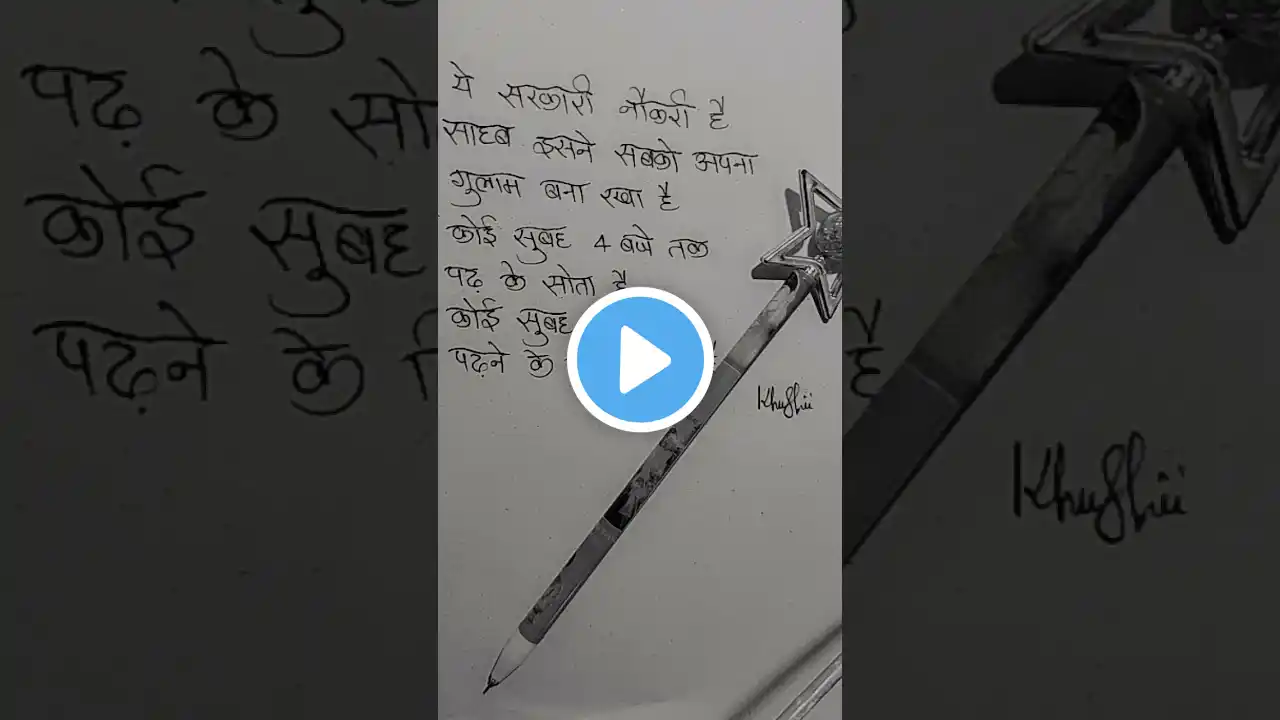 ये सरकारी नौकरी है
साहब इसने सबको अपना
गुलाम बना रखा है
कोई सुबह 4 बजे तक
पढ़ के सोता है
कोई सुबह
पढ़ने के
Khushii